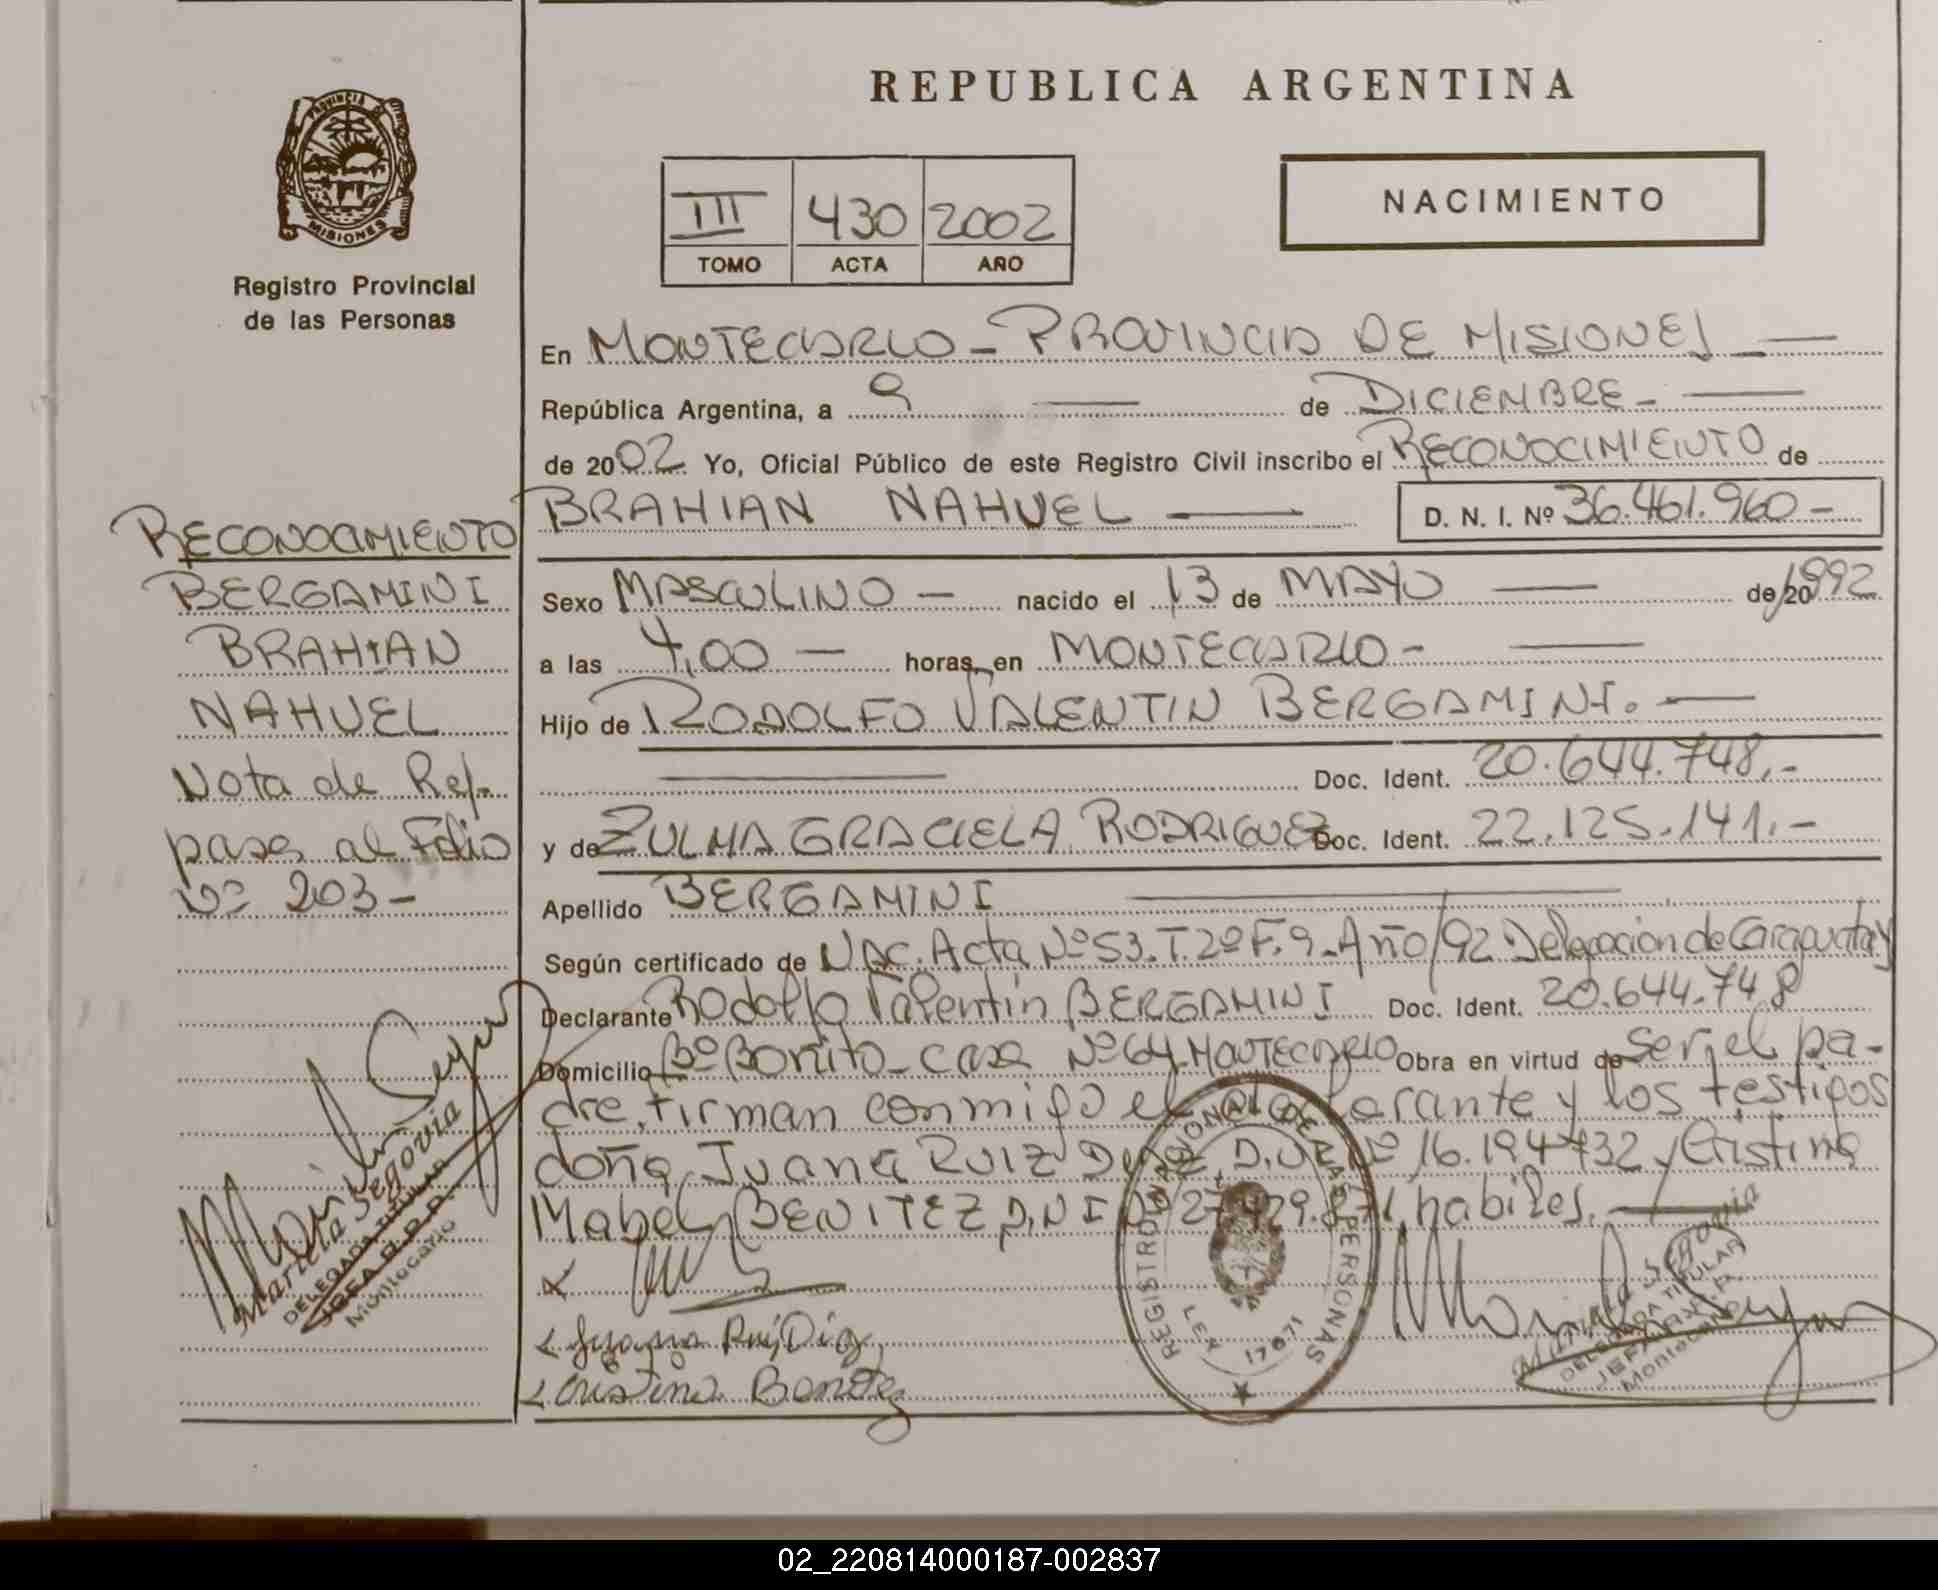 REPUBLICA ARGENTINA
PROVINCIA DE
MISIONES
Registro Provincial
de las Personas
III 430 2002
TOMO ACTA AÑO
NACIMIENTO
En MONTECARLO - PROVINCIA DE MISIONES
República Argentina, a 9 de DICIEMBRE -
de 2002 Yo, Oficial Público de este Registro Civil inscribo el RECONOCIMIENTO de
BRAHIAN NAHUEL D. N. I. Nº 36.461.960 -
Sexo MASCULINO - nacido el 13 de MAYO de /20 1992
a las 4,00 - horas, en MONTECARLO -
Hijo de RODOLFO VALENTIN BERGAMINI. -
Doc. Ident. 20.644.748.-
y de ZULMA GRACIELA RODRIGUEZ Doc. Ident. 22.125.141.-
Apellido BERGAMINI
Según certificado de NAC. Acta Nº 53. T. 2º F. 9 - Año/92 Delegacion de Caraguatay
Declarante Rodolfo Valentin BERGAMINI Doc. Ident. 20.644.748
Domicilio Bº Bonito - casa Nº 64 MONTECARLO Obra en virtud de ser el pa-
dre, firman conmigo el declarante y los testigos
doña Juana RUIZ DIAZ D.N.I. Nº 16.194732 y Cristina
Mabel BENITEZ D.N.I. Nº 27.429.871, habiles.
Juana Ruiz Diaz
Cristina Benitez
REGISTRO NACIONAL DE LAS PERSONAS
LEY 17671
Mariela Segovia
DELEGADA TITULAR
JEFA R.P.P.
Montecarlo
RECONOCIMIENTO
BERGAMINI
BRAHIAN
NAHUEL
Nota de Ref.
pasa al Folio
Nº 203 -
Mariela Segovia
DELEGADA TITULAR
JEFA R.P.P.
Montecarlo
02_220814000187-002837